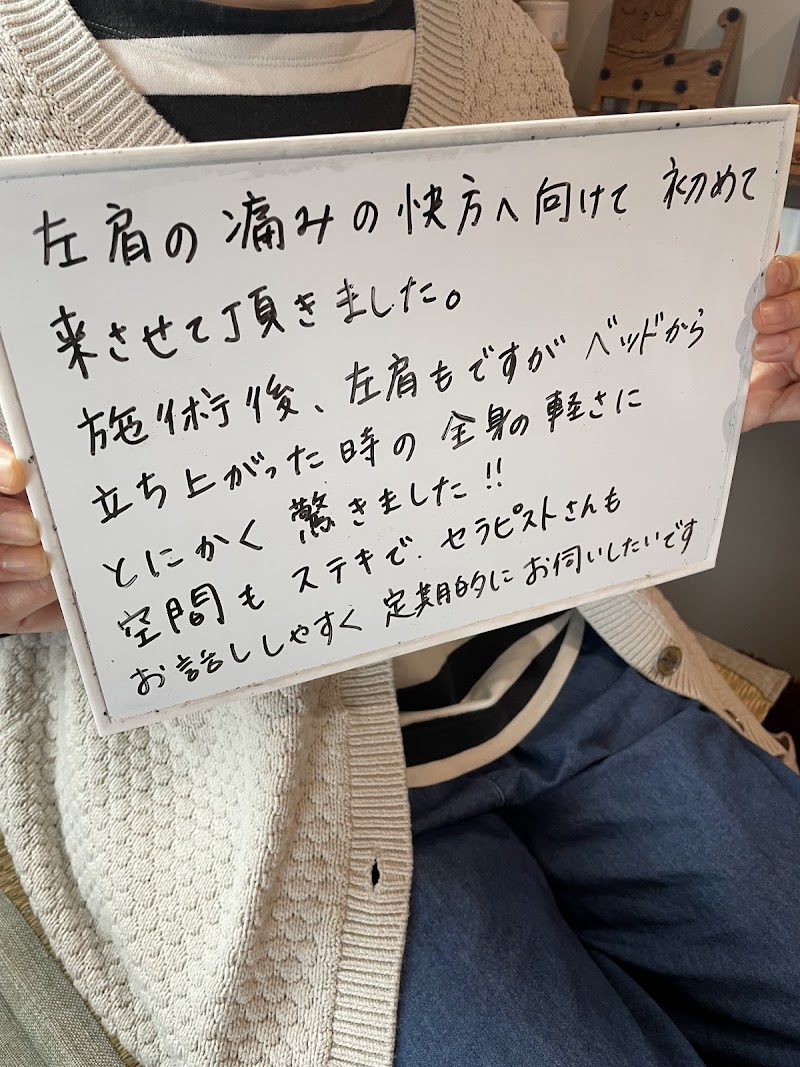 左肩の痛みの快方へ向けて 初めて
来させて頂きました。
施術後、左肩もですが ベッドから
立ち上がった時の 全身の軽さに
とにかく 驚きました!!
空間も ステキで、セラピストさんも
お話ししやすく 定期的に お伺いしたいです